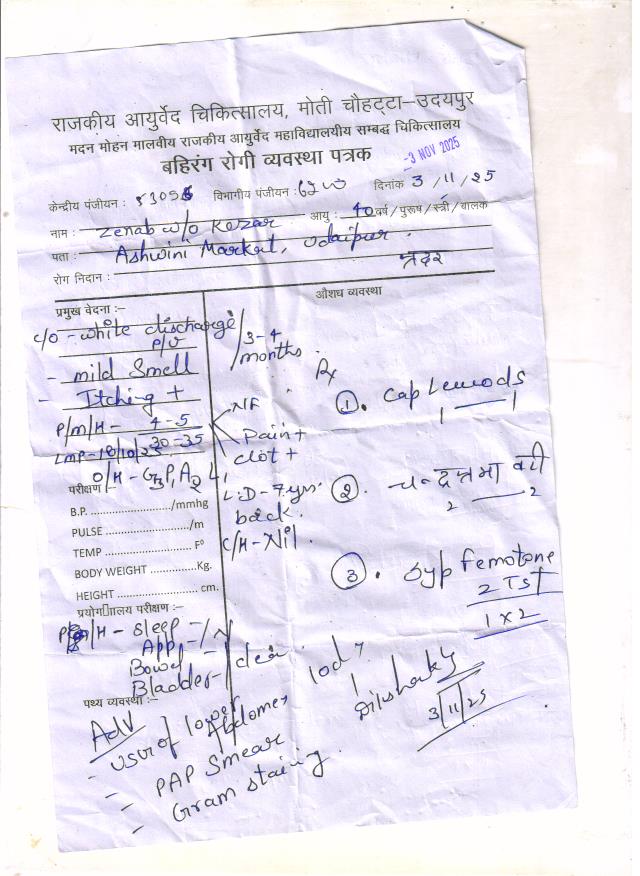 राजकीय आयुर्वेद चिकित्सालय, मोती चौहट्टा–उदयपुर
मदन मोहन मालवीय राजकीय आयुर्वेद महाविद्यालयीय सम्बद्ध चिकित्सालय
बहिरंग रोगी व्यवस्था पत्रक
-3 NOV 2025
केन्द्रीय पंजीयन : विभागीय पंजीयन : दिनांक 3/11/25
नाम : Zenab w/o Kezar आयु : 40 वर्ष/पुरूष/स्त्री/बालक
पता : Ashwini Market, Udaipur.
रोग निदान : प्रदर
प्रमुख वेदना :–
औशध व्यवस्था
c/o - white discharge P/V
- mild Smell
- Itching +
3-4 months.
P/M/H - 4-5
30-35
NF
Pain +
clot +
LMP - 18/10/25
O/H - G3P1A2L1
L.D - 7 yrs. back.
C/H - Nil.
Rx
① . Cap Leucods
1 — 1
② . चन्द्रप्रभा वटी
2 — 2
③ . Syp Femotone
2 TSF
1 x 2
परीक्षण :–
B.P. ....................../mmhg
PULSE ....................../m
TEMP ...................... F°
BODY WEIGHT ..............Kg.
HEIGHT ...................... cm.
प्रयोगाालय परीक्षण :–
P/H - Sleep - / N
App -
Bowel - / clear
Bladder -
पथ्य व्यवस्था :–
Adv
- USG of lower Abdomen
- PAP Smear
- Gram staining.
10d
3/11/25